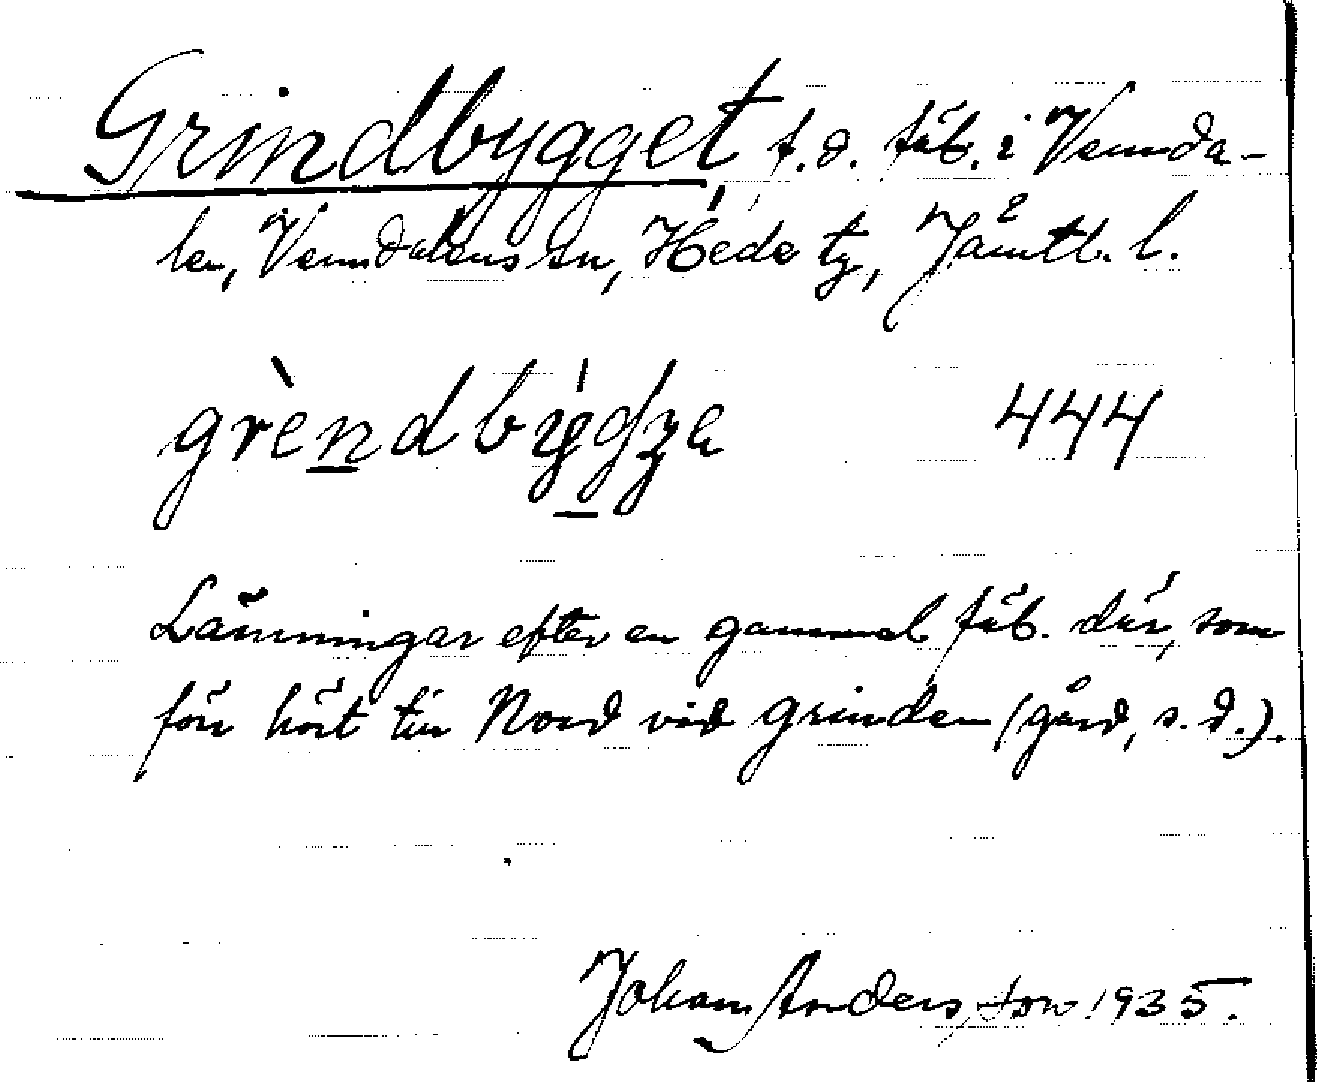 Grindbygget, f.d. fäb. i Vemda-
len, Vemdalens sn, Hede tg, Jämtl. l.
grèndbýgʒe 444
Lämningar efter en gammal fäb. där, som
förr hört till Nord vid grinden (gård, s. d.).
Johan Andersson 1935.